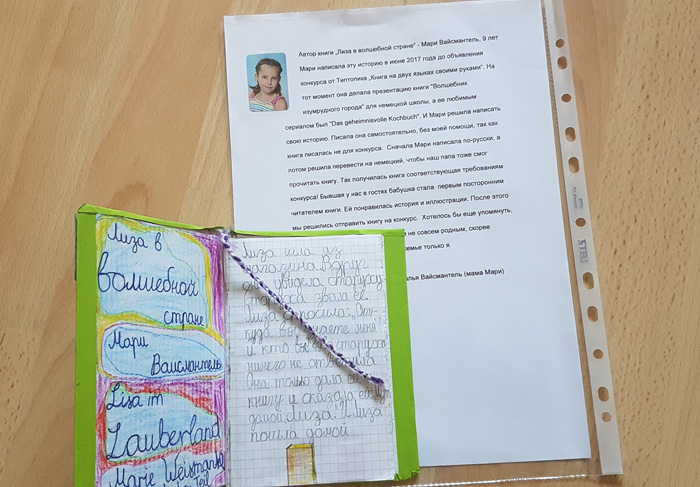 Автор книги „Лиза в волшебной стране“ - Мари Вайсмантель, 9 лет
Мари написала эту историю в июне 2017 года до объявления
конкурса от Типтопика „Книга на двух языках своими руками“. На
тот момент она делала презентацию книги "Волшебник
изумрудного города" для немецкой школы, а ее любимым
сериалом был "Das geheimnisvolle Kochbuch". И Мари решила написать
свою историю. Писала она самостоятельно, без моей помощи, так как
книга писалась не для конкурса. Сначала Мари написала по-русски, а
потом решила перевести на немецкий, чтобы наш папа тоже смог
прочитать книгу. Так получилась книга соответствующая требованиям
конкурса! Бывшая у нас в гостях бабушка стала первым посторонним
читателем книги. Ей понравилась история и иллюстрации. После этого
мы решились отправить книгу на конкурс. Хотелось бы еще упомянуть,
не совсем родным, скорее
семье только я.
Вайсмантель (мама Мари)
Лиза в
волшебной
стране
Мари
Ваисмантель
Lisa im
Zauberland
Marie
Лиза шла из
магазина. Вдруг
она увидела старуху
звала её.
Лиза спросила: „От-
куда вы знаете меня
и кто вы?" старуха
ничего не ответила
Она только дала ей
книгу и сказала ей: иди
домой Лиза. И Лиза
пошла домой